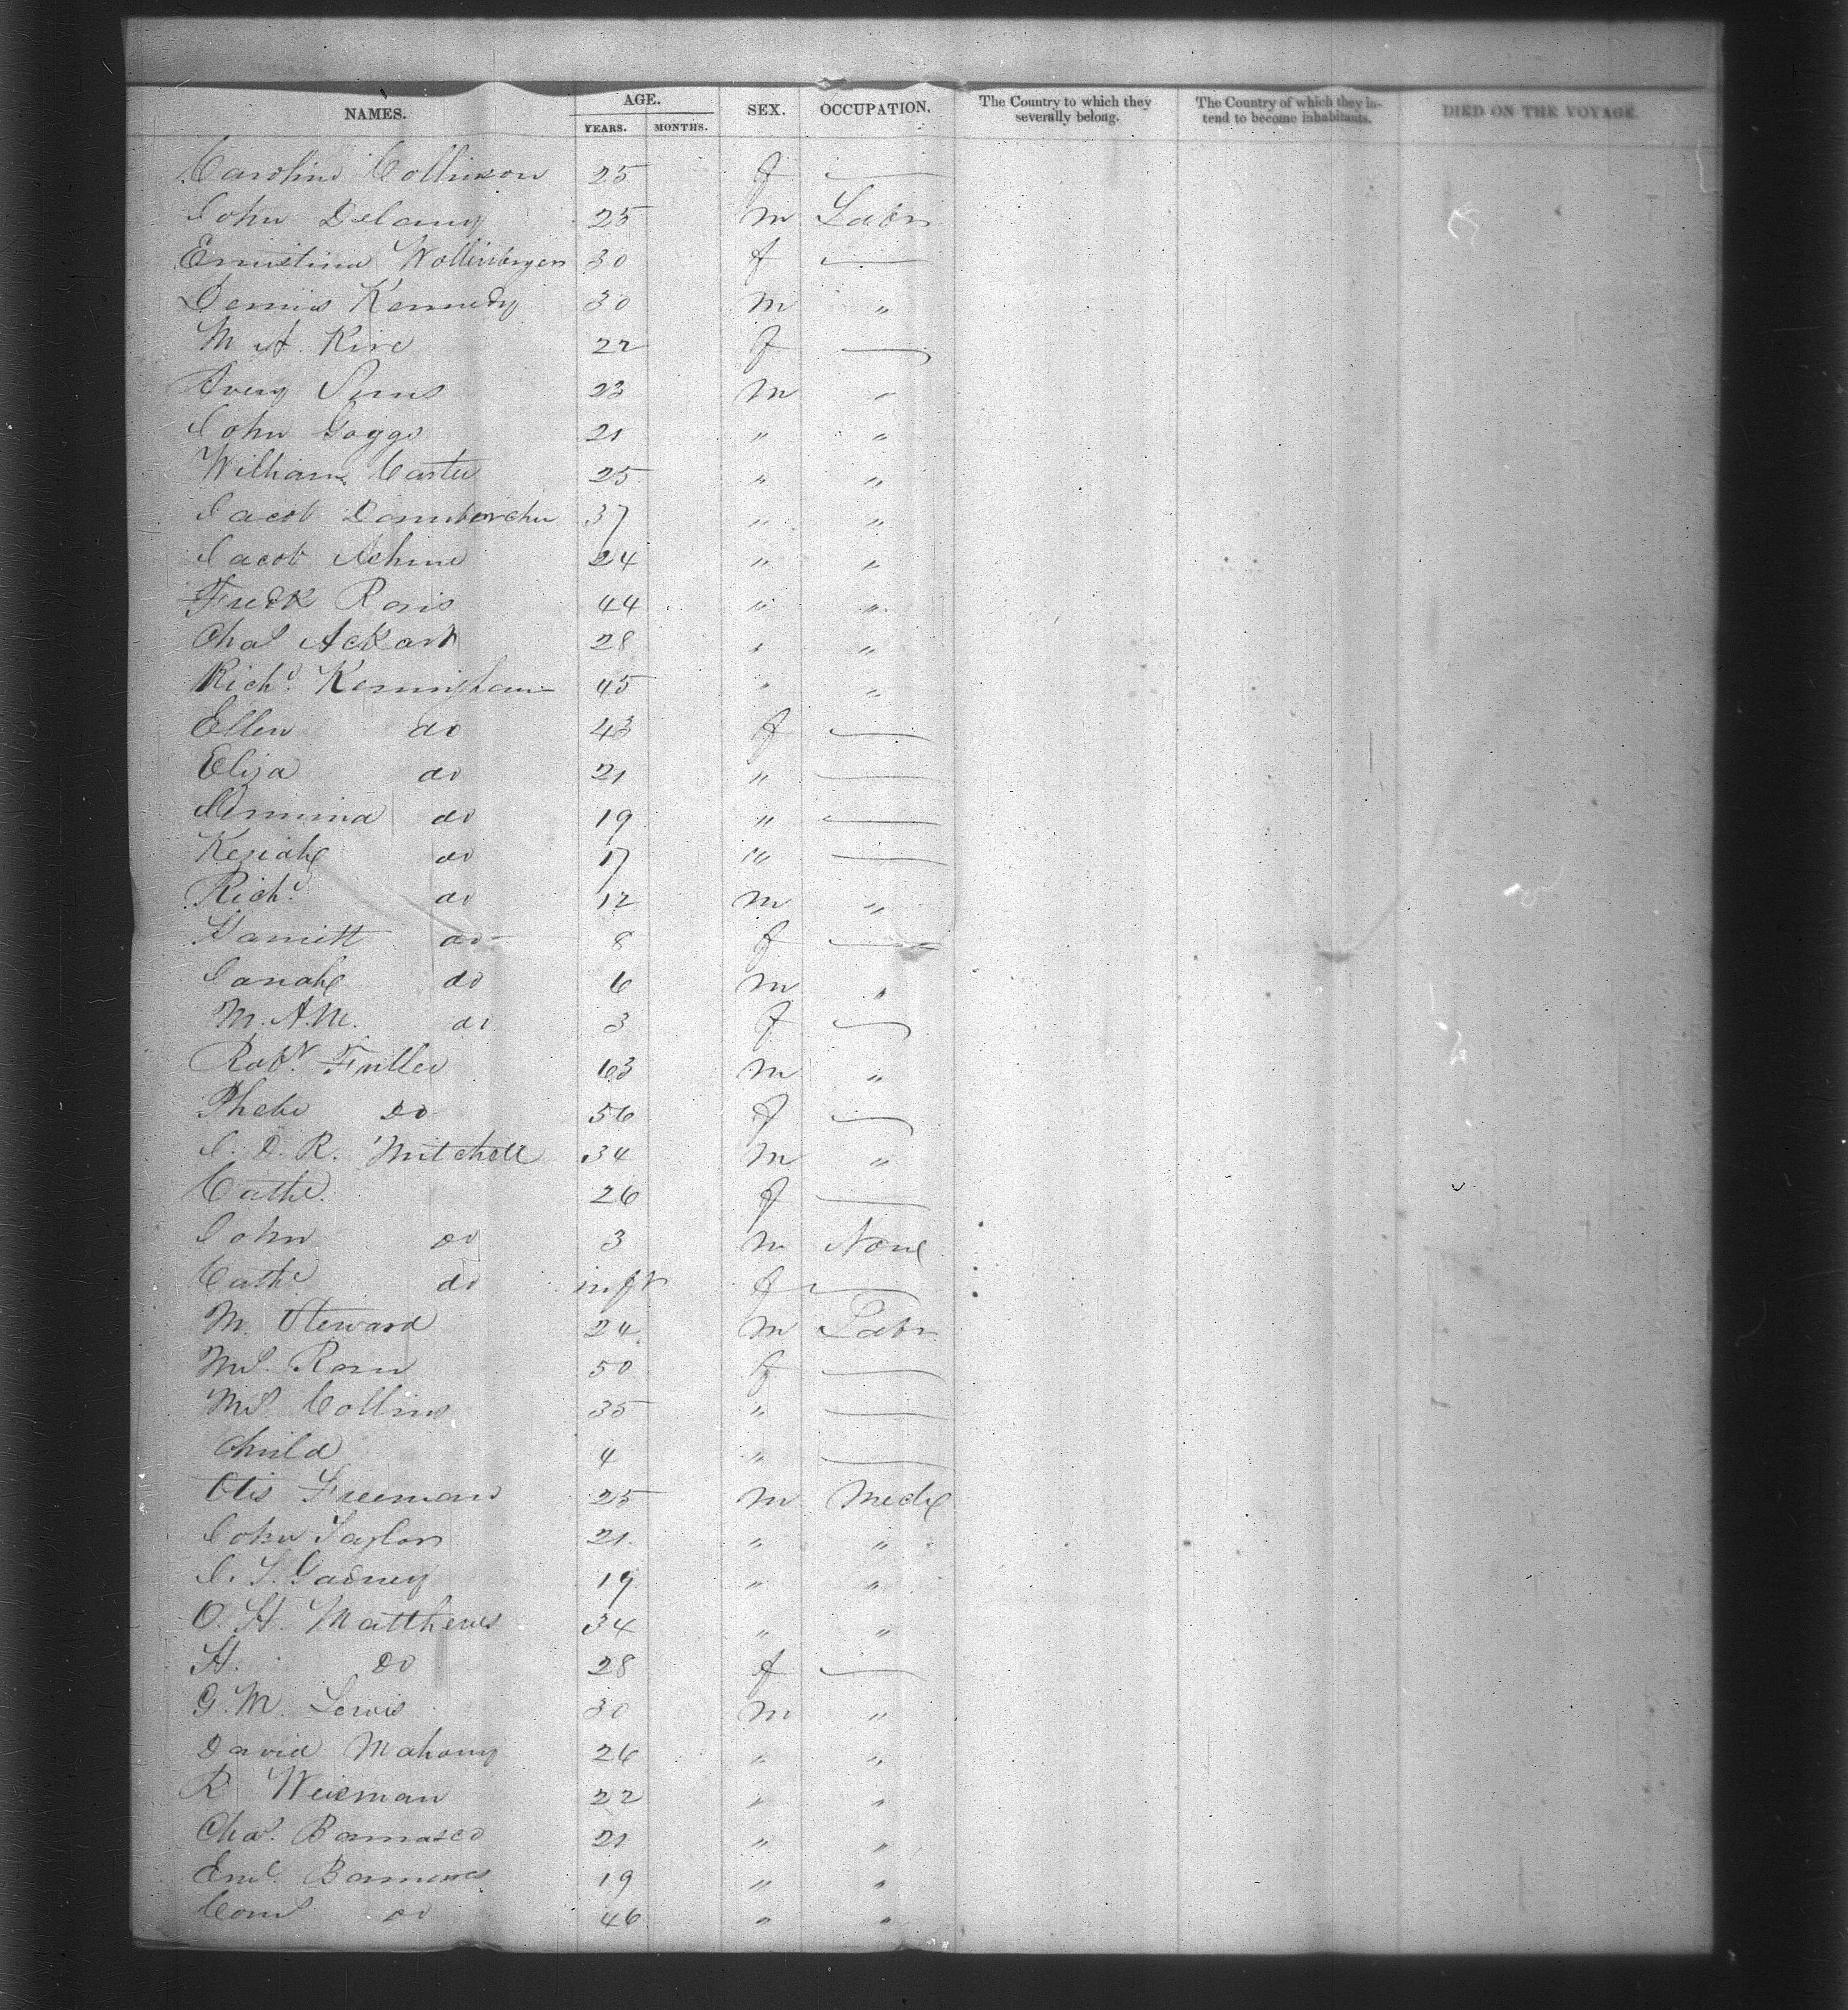 NAMES. AGE. SEX. OCCUPATION. The Country to which they severally belong. The Country of which they intend to become inhabitants. DIED ON THE VOYAGE.
YEARS. MONTHS.
Caroline Collinson 25 f —
John Delany 25 m Labr
Ernestina 30 f —
Dennis Kennedy 30 m "
M A. 22 f —
Avery Sims 23 m "
John Goggs 21 " "
William Carter 25 " "
Jacob 37 " "
Jacob 24 " "
Fredk 44 " "
Chas Ackart 28 " "
Richd. Kerningham 45 " "
Ellen do 43 f —
Eliza do 21 " —
Jemima do 19 " —
Keziah do 17 " —
Richd. do 12 m "
Harriett do 8 f —
do 6 m "
M. A. M. do 3 f —
Robt. Fuller 63 m "
Phebe Do 56 f —
J. D. R. Mitchell 34 m "
Cathe. 26 f —
John do 3 m None
Cathe. do inft f —
M. Steward 24 m Labr
Ms. 50 f —
Ms. Collins 35 " —
Child 4 " —
Otis Freeman 25 m Mech
John Taylor 21 " "
J. T. Gadney 19 " "
O. H. Matthews 34 " "
H. Do 28 f —
G. M. Lewis 30 m "
David Mahony 26 " "
R Weisman 22 " "
Chas. 21 " "
Eml. 19 " "
do 46 " "